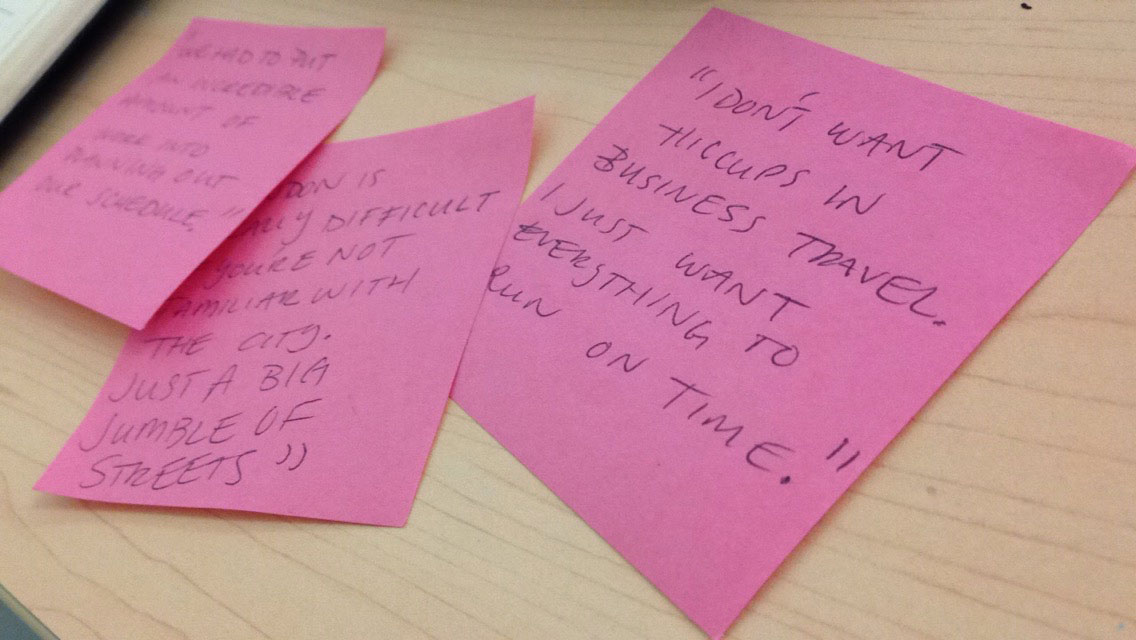 "WE HAD TO PUT
AN INCREDIBLE
AMOUNT OF
WORK INTO
PLANNING OUT
OUR SCHEDULE."
DON IS
DIFFICULT
YOU'RE NOT
FAMILIAR WITH
THE CITY.
JUST A BIG
JUMBLE OF
STREETS"
"I DON'T WANT
HICCUPS IN
BUSINESS TRAVEL.
I JUST WANT
EVERYTHING TO
RUN
ON TIME."